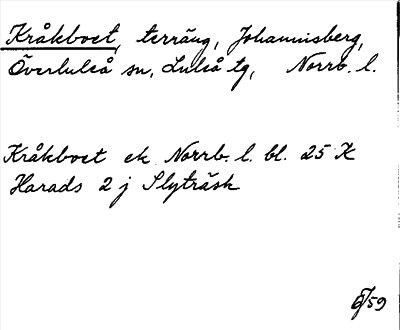 Kråkboet, terräng, Johannisberg,
Överluleå sn, Luleå tg, Norrb. l.
Kråkboet ek Norrb. l. bl. 25 K
Harads 2 j Slyträsk
/59